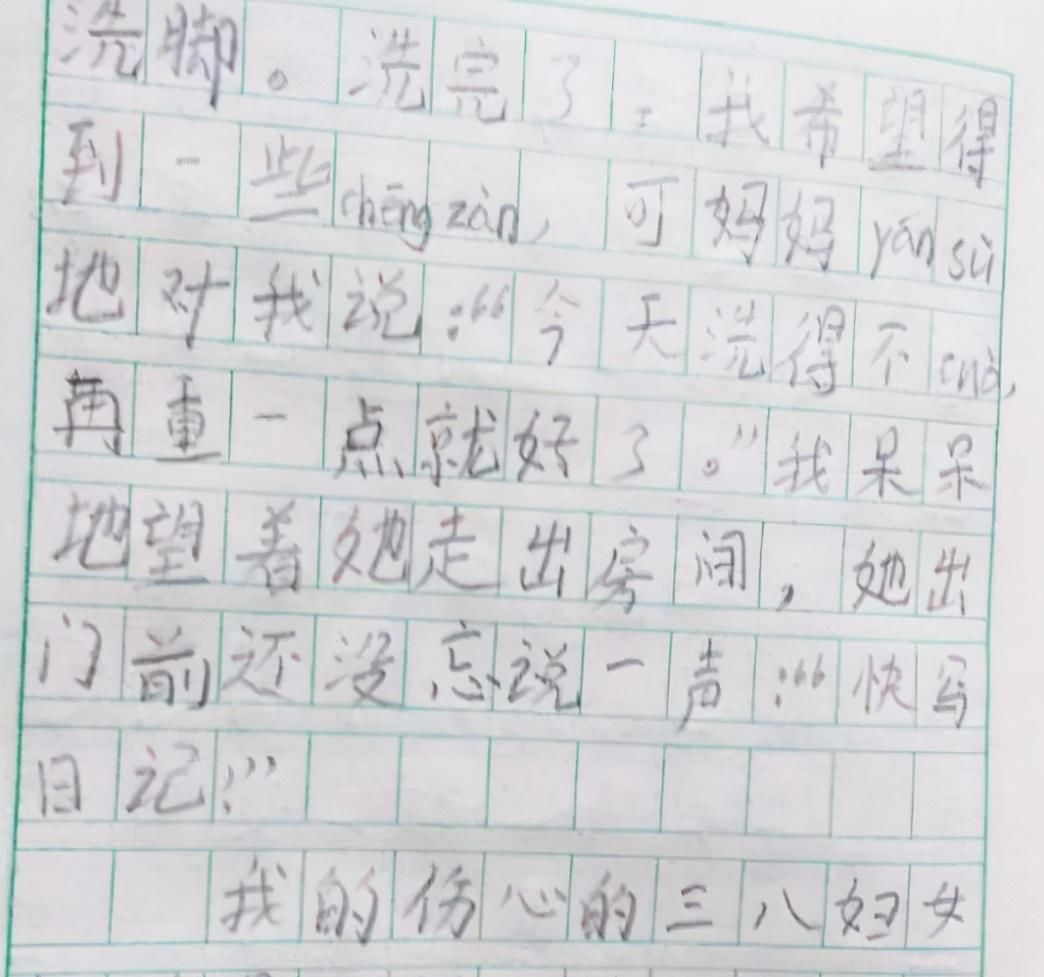 洗脚。洗完了，我希望得
到一些chēngzàn，可妈妈yánsù
地对我说：“今天洗得不cuò，
再重一点就好了。”我呆呆
地望着她走出房间，她出
门前还没忘说一声：“快写
日记！”
我的伤心的三八妇女